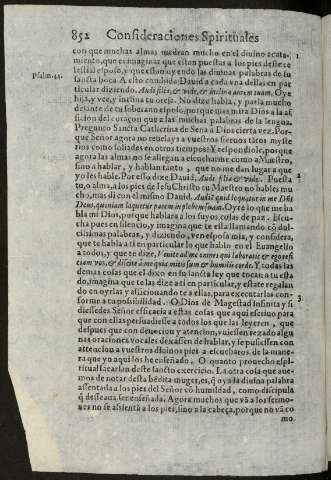 852 Consideraciones Spirituales
con que muchas almas medran mucho en el diuino acata-
miento, que es imaginar que estan puestas a los pies deste ce
lestial esposo, y que estan oyendo las diuinas palabras de su
sancta boca. A esto combida Dauid a cada vna dellas en par
Psalm. 44.
ticular diziendo. Audi filia, & vide, & inclina aurem tuam. Oye
hija, y vee, y inclina tu oreja. No dize habla, y parla mucho
delante de tu soberano esposo, porque mas mira Dios a la af
ficion del coraçon que a las muchas palabras de la lengua.
Pregunto Sancta Catherina de Sena a Dios cierta vez. Por-
que Señor agora no reuelays a vuestros sieruos tãtos myste
rios como soliades en otros tiempos? Y respondiole, porque
agora las almas no se allegan a escucharme como a Maestro,
sino a hablar, y hablan tanto, que no me dan lugar a que
yo les hable. Por esso dize Dauid, Audi filia & vide. Puesta
tu, o alma, a los pies de Iesu Christo tu Maestro no hables mu
cho, mas di con el mismo Dauid. Audiã quid loquatur in me Dñs
Deus, quoniam loquetur pacem in plebem suam. Oyre lo que me ha
bla mi Dios, porque hablara a los suyos cosas de paz. Escu-
cha pues en silencio, y imagina que te esta llamando cõ dul-
cissimas palabras, y diziendo, ven esposa mia, y considera,
que te habla a ti en particular lo que hablo en el Euangelio
a todos, y que te dize, Venite ad me omnes qui laboratis & ego refi
ciam vos, & discite à me quia mitis sum & humilis corde. Y todas las
demas cosas que el dixo en su sancta ley que tocan a tu esta
do, imagina que te las dize a ti en particular, y estate regalan
do en oyrlas y afficionando te a ellas, para executarlas con-
forme a tu possibilidad. O Dios de Magestad infinita y si
diessedes Señor efficacia a estas cosas que aqui escriuo para
que con ellas persuadiesse a todos los que las leyeren, que
despues que con deuocion y atencion, vuiessen rezado algu
nas oraciones vocales dexassen de hablar, y se pusiessen con
attencion a vuestros diuinos pies a escucharos de la mane-
ra que yo aqui los he enseñado. O quanto prouecho espi-
ritual sacarian deste sancto exercicio. La otra cosa que aue-
mos de notar desta bẽdita muger, es, q̃ oya la diuina palabra
assentada a los pies del Señor cõ humildad, como discipula
q̃ desseaua ser enseñada. Agora muchos que vã a los sermo-
nes no se assientã a los pies, sino a la cabeça, porque no vã co
mo
1
2
3